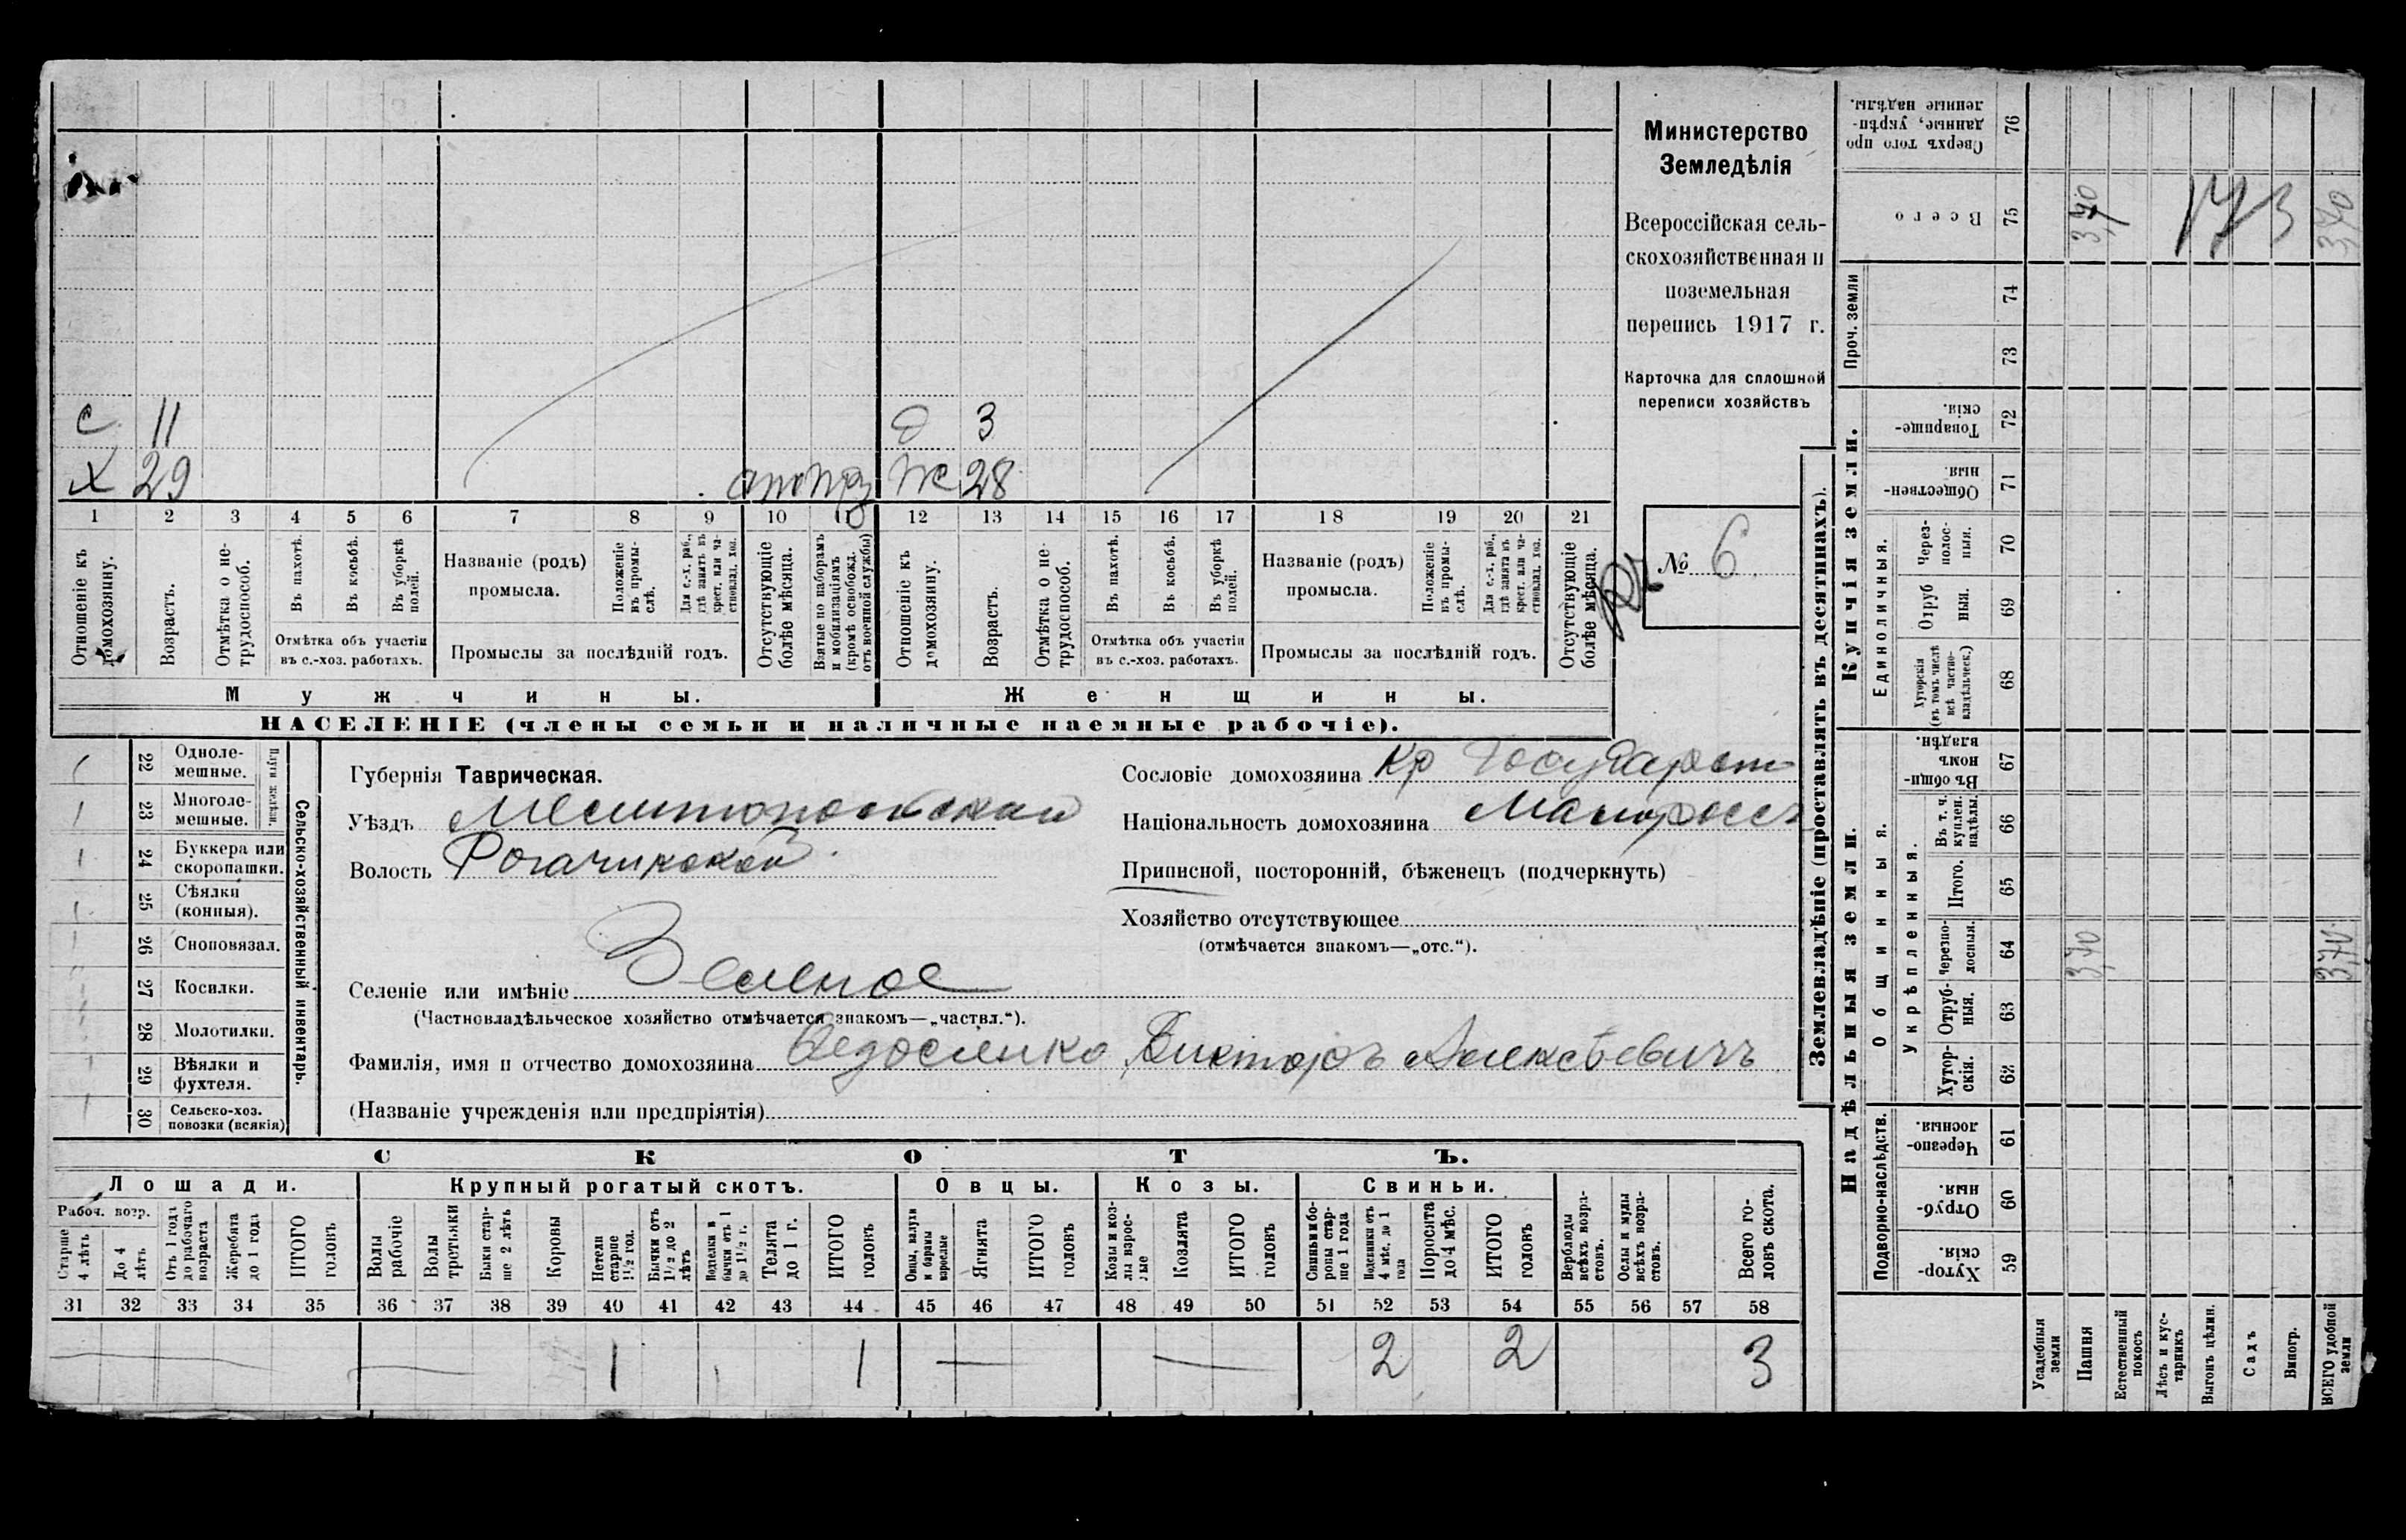 Министерство
Земледѣлія
Всероссійская сель-
скохозяйственная и
поземельная
перепись 1917 г.
Карточка для сплошной
переписи хозяйствъ
№ 6
с 11
д 3
х 29
ж 28
1 2 3 4 5 6 7 8 9 10 11 12 13 14 15 16 17 18 19 20 21
Отношеніе къ домохозяину.
Возрастъ.
Отмѣтка о не-трудоспособ.
Въ пахотѣ.
Въ косьбѣ.
Въ уборкѣ полей.
Отмѣтка объ участіи
въ с.-хоз. работахъ.
Названіе (родъ)
промысла.
Положеніе въ промы-слѣ.
Для с.-х. раб., гдѣ занятъ въ крест. или ча-стновлад. хоз.
Промыслы за послѣдній годъ.
Отсутствующіе болѣе мѣсяца.
Взятые по наборамъ и мобилизаціямъ (кромѣ освобожд. отъ военной службы)
Отношеніе къ домохозяину.
Возрастъ.
Отмѣтка о не-трудоспособ.
Въ пахотѣ.
Въ косьбѣ.
Въ уборкѣ полей.
Отмѣтка объ участіи
въ с.-хоз. работахъ.
Названіе (родъ)
промысла.
Положеніе въ промы-слѣ.
Для с.-х. раб., гдѣ занята въ крест. или ча-стновлад. хоз.
Промыслы за послѣдній годъ.
Отсутствующіе болѣе мѣсяца.
Мужчины.
Женщины.
НАСЕЛЕНІЕ (члены семьи и наличные наемные рабочіе).
Сельско-хозяйственный инвентарь.
Плуги желѣзн.
22 Одноле-мешные.
23 Многоле-мешные.
24 Буккера или скоропашки.
25 Сѣялки (конныя).
26 Сноповязал.
27 Косилки.
28 Молотилки.
29 Вѣялки и фухтеля.
30 Сельско-хоз. повозки (всякія)
Губернія Таврическая.
Уѣздъ Мелитопольскій
Волость Рогачикской
Селеніе или имѣніе Зеленое
(Частновладѣльческое хозяйство отмѣчается знакомъ—„частвл.“).
Сословіе домохозяина кр Государст
Національность домохозяина Малоросс
Приписной, посторонній, бѣженецъ (подчеркнуть)
Хозяйство отсутствующее
(отмѣчается знакомъ—„отс.“).
Фамилія, имя и отчество домохозяина Федосенко Викторъ Алексѣевичъ
(Названіе учрежденія или предпріятія)
СКОТЪ.
Лошади. Крупный рогатый скотъ. Овцы. Козы. Свиньи.
Рабоч. возр.
Старше 4 лѣтъ
До 4 лѣтъ
Отъ 1 года до рабочаго возраста
Жеребята до 1 года
ИТОГО головъ
Волы рабочіе
Волы третьяки
Быки стар-ше 2 лѣтъ
Коровы
Нетели старше 1½ год.
Бычки отъ 1½ до 2 лѣтъ
Подтелки и бычки отъ 1 до 1½ г.
Телята до 1 г.
ИТОГО головъ
Овцы, валухи и бараны взрослые
Ягнята
ИТОГО головъ
Козы и коз-лы взрос-лые
Козлята
ИТОГО головъ
Свиньи и бо-ровы стар-ше 1 года
Подсвинки отъ 4 мѣс. до 1 года
Поросята до 4 мѣс.
ИТОГО головъ
Верблюды всѣхъ возра-стовъ.
Ослы и мулы всѣхъ возра-стовъ.
Всего го-ловъ скота.
31 32 33 34 35 36 37 38 39 40 41 42 43 44 45 46 47 48 49 50 51 52 53 54 55 56 57 58
1 1 2 2 3
Землевладѣніе (проставлять въ десятинахъ).
Надѣльныя земли.
Купчія земли.
Проч. земли
Подворно-наслѣдств.
Общинныя.
Укрѣпленныя.
Единоличныя.
Хутор-скія. 59
Отруб-ныя. 60
Черезпо-лосныя. 61
Хутор-скія. 62
Отруб-ныя. 63
Черезпо-лосныя. 64
Итого. 65
Въ т. ч. куплен. надѣлы. 66
Въ общин-номъ владѣн. 67
Хуторскія (въ томъ числѣ всѣ частно-владѣльческ.) 68
Отруб ныя. 69
Через-полос-ныя. 70
Обществен-ныя. 71
Товарище-скія. 72
73
74
Всего 75
Сверхъ того про данные, укрѣп-ленные надѣлы. 76
Усадебныя земли
Пашня
Естественный покосъ
Лѣсъ и кус-тарникъ
Выгонъ цѣлин.
Садъ
Виногр.
ВСЕГО удобной земли
3,70 3,70
3,70 173 3,70